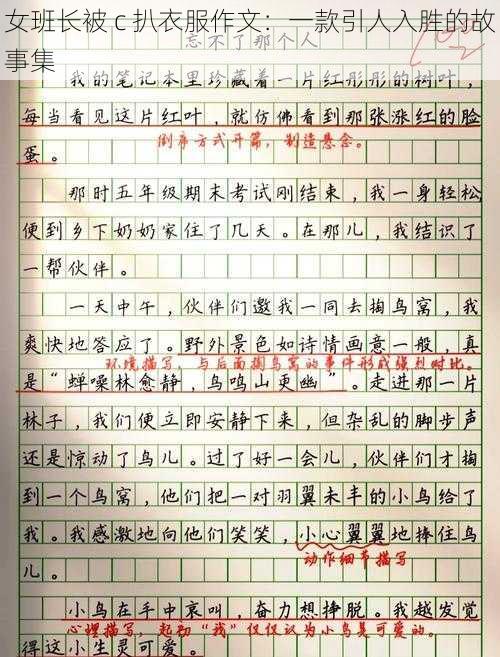 女班长被 c 扒衣服作文：一款引人入胜的故
事集
忘不了那个人
我的笔记本里珍藏着一片红彤彤的树叶，
每当看见这片红叶，就仿佛看到那张涨红的脸
蛋。
倒序方式开篇，制造悬念。
那时五年级期末考试刚结束，我一身轻松，
便到乡下奶奶家住了几天。在那儿，我结识了
一帮伙伴。
一天中午，伙伴们邀我一同去掏鸟窝，我
爽快地答应了。野外景色如诗情画意一般，真
环境描写，与后面掏鸟窝的事件形成强烈对比。
是“蝉噪林愈静，鸟鸣山更幽”。走进那一片
林子，我们便立即安静下来，但杂乱的脚步声
还是惊动了鸟儿。过了好一会儿，伙伴们才掏
到一个鸟窝，他们把一对羽翼未丰的小鸟给了
我。我感激地向他们笑笑，小心翼翼地捧住鸟
儿。
动作细节描写
小鸟在手中哀叫，奋力想挣脱。我越发觉
心理描写，起初“我”仅仅认为小鸟是可爱的。
得这小生灵可爱。